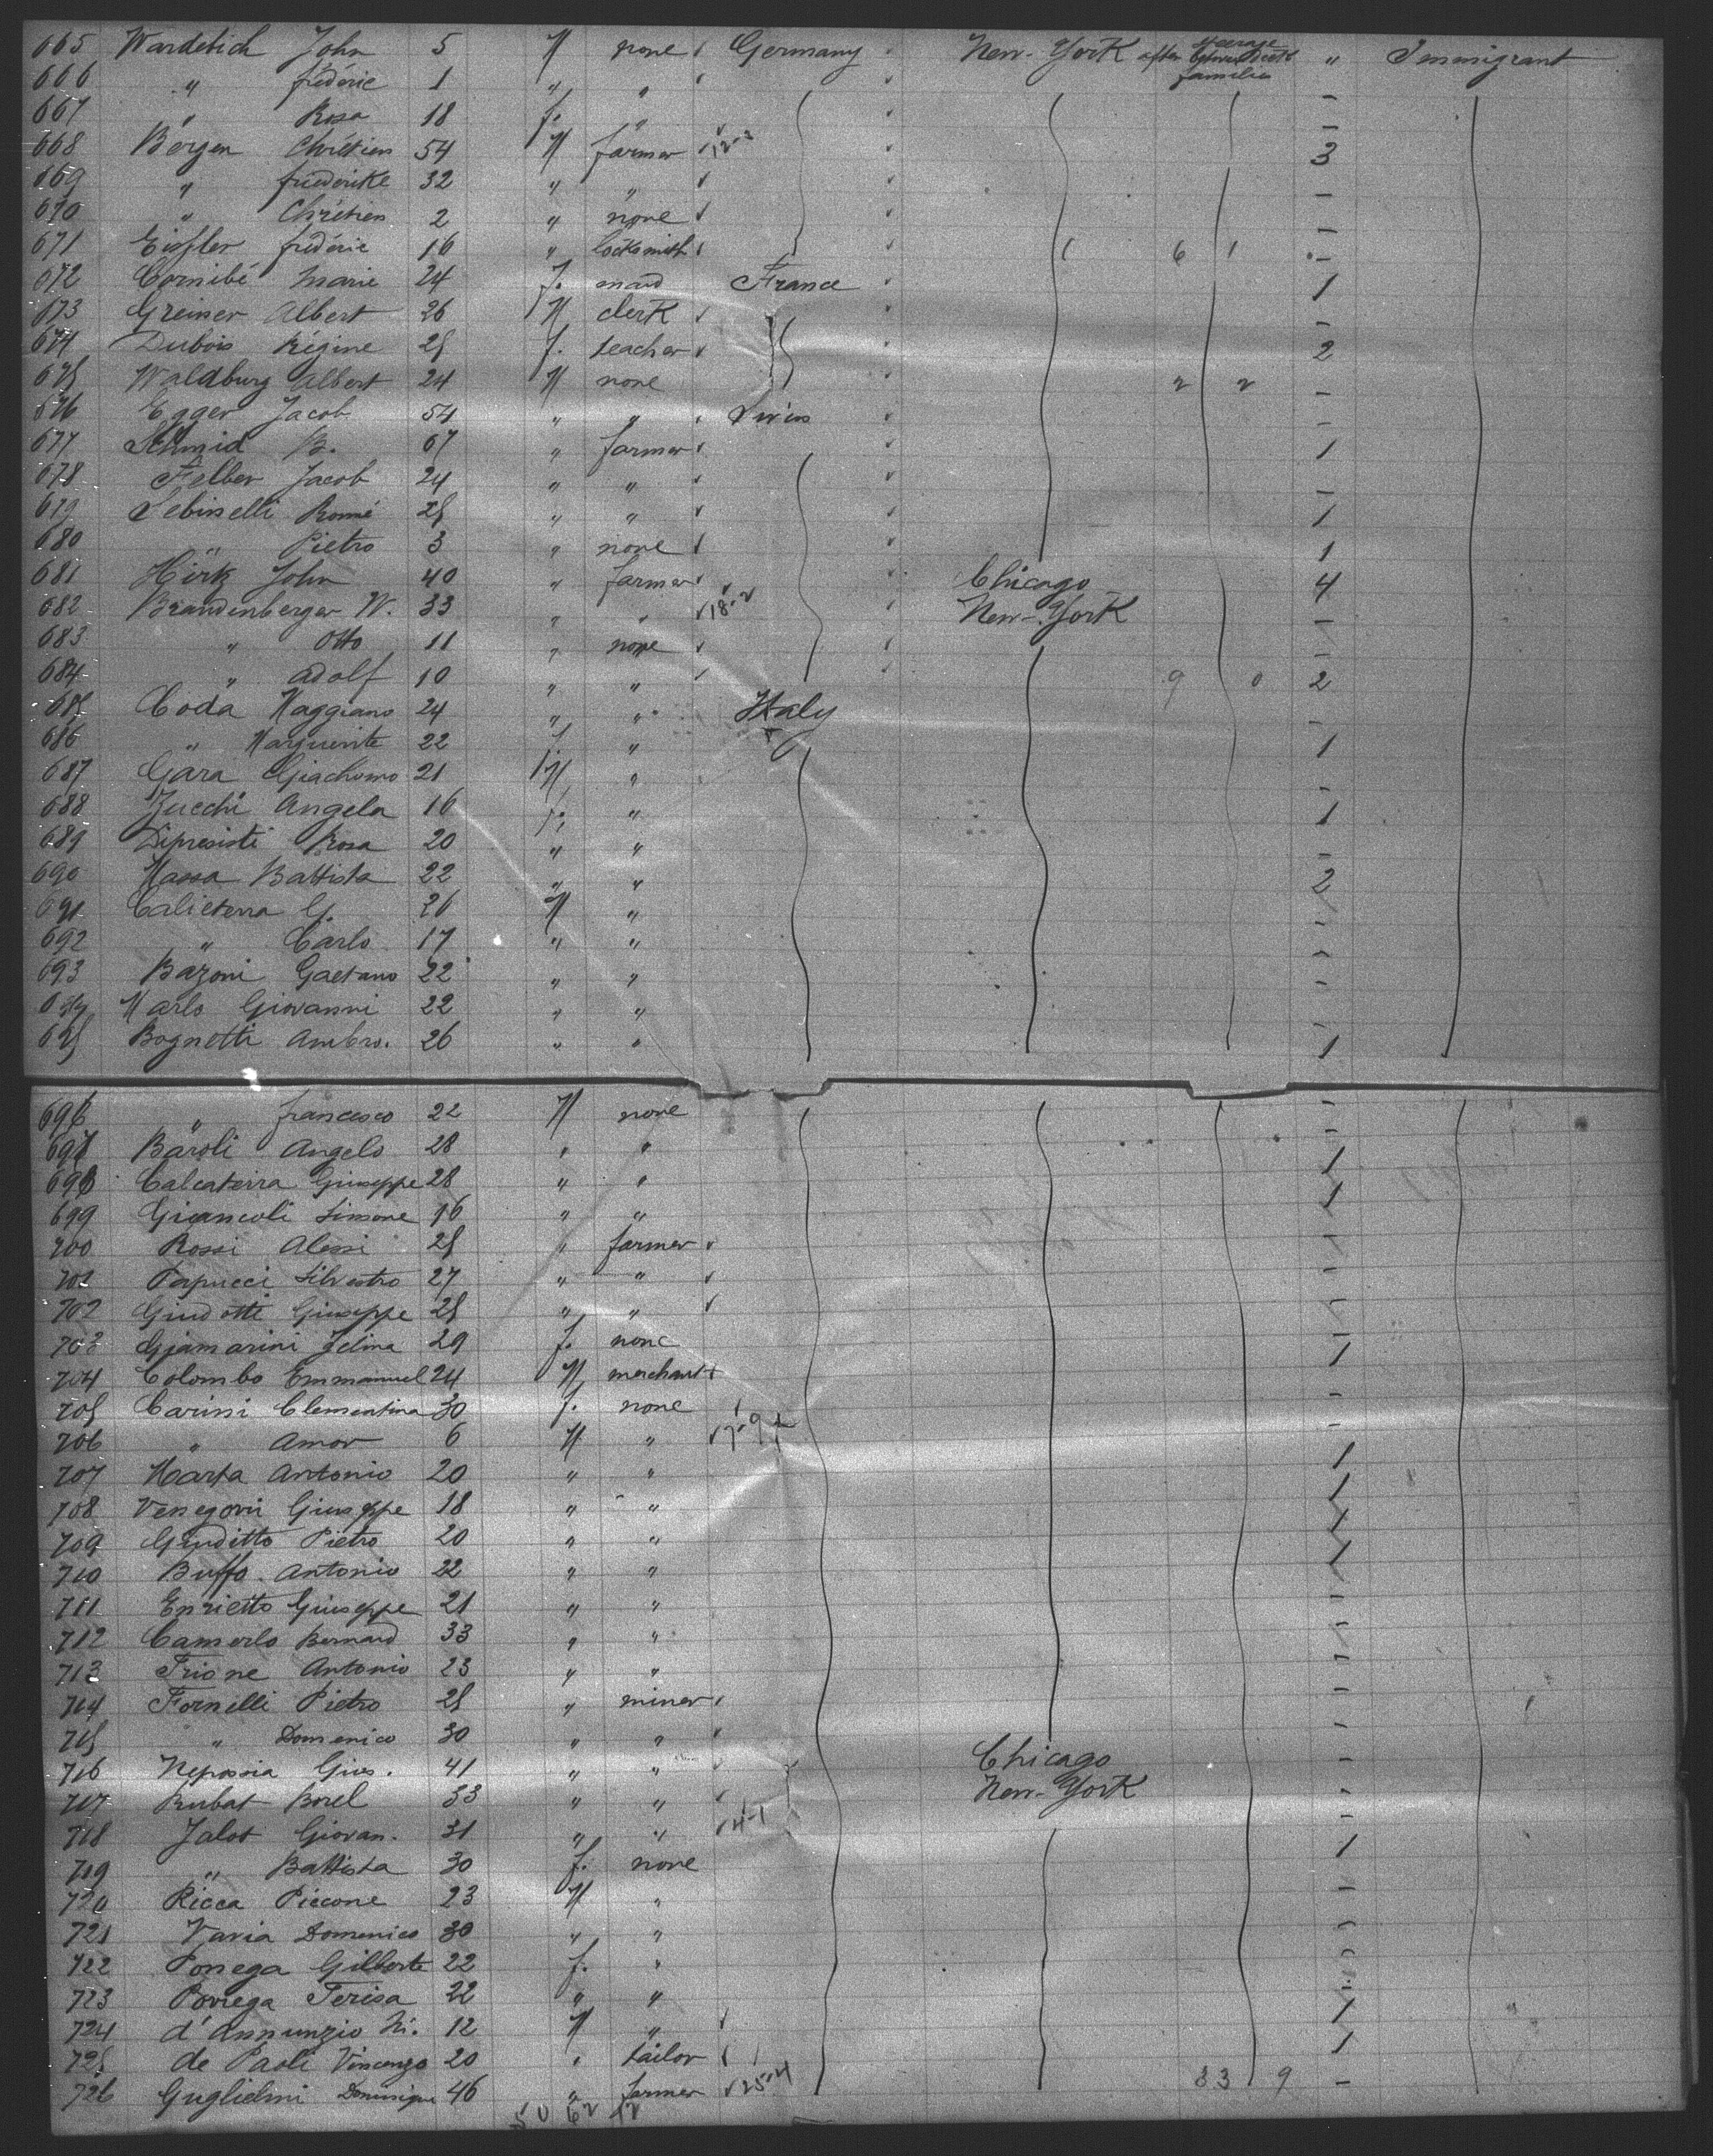 665 Wardetich John 5 M none Germany New-York after steerage between Deck families " Immigrant
666 " frédéric 1 " " -
667 " Rosa 18 f. " -
668 Bergen Chrétien 54 M farmer 12-3 3
669 " frederike 32 " " -
670 " Chrétien 2 " none -
671 Eissler frédéric 16 " locksmith 6 1 -
672 Cornibé Marie 24 f. maid France 1
673 Greiner Albert 26 M clerk -
674 Dubois Régine 25 f. teacher 2
675 Waldburg Albert 24 M none 2 2
676 Egger Jacob 54 " " Swiss -
677 Schmid B. 67 " farmer 1
678 Felber Jacob 24 " " -
679 Sebinelli Romé 25 " " 1
680 " Pietro 3 " none 1
681 Hirtz John 40 " farmer Chicago 4
682 Brandenberger W. 33 " " 18-2 New-York -
683 " Otto 11 " none -
684 " Adolf 10 " " 9 0 2
685 Coda Maggiano 24 " " Italy -
686 " Marguerite 22 f. " 1
687 Gara Giachomo 21 M " -
688 Zucchi Angela 16 f. " 1
689 Dipresisti Rosa 20 " " -
690 Massa Battista 22 " " 2
691 Calieterra G. 26 M " -
692 " Carlo 17 " " -
693 Bazoni Gaetano 22 " " -
694 Marlo Giovanni 22 " "
695 Bognetti Ambro. 26 " " 1
696 " francesco 22 M none -
697 Baroli Angelo 28 " " 1
698 Calcaterra Giuseppe 28 " " 1
699 Giancoli Simone 16 " "
700 Rossi Alessi 25 " farmer -
701 Papucci Silvestro 27 " " -
702 Giudotti Giuseppe 25 " " -
703 Gjamarini Zelina 29 f. none 1
704 Colombo Emmanuel 24 M merchant
705 Carissi Clementina 30 f. none -
706 " Amor 6 M " 7-9 1
707 Marta Antonio 20 " " 1
708 Venegoni Giuseppe 18 " " 1
709 Giuditto Pietro 20 " " 1
710 Buffo Antonio 22 " "
711 Enrietto Giuseppe 21 " " -
712 Camerlo Bernard 33 " " -
713 Trione Antonio 23 " " -
714 Fornelli Pietro 25 " miner -
715 " Domenico 30 " " -
716 Nepossia Gius. 41 " " Chicago -
717 Rubat Borel 33 " " New-York -
718 Jalot Giovan. 31 " " 4-1 -
719 " Battista 30 f. none 1
720 Ricca Piccone 23 M " -
721 Varia Domenico 30 " " -
722 Ponega Gilberte 22 f. " -
723 Ponega Terisa 22 " " -
724 d'Annunzio Ni. 12 M " 1
725 de Paoli Vincenzo 20 " tailor 1
726 Guglielmi Dominique 46 " farmer 25-4 33 9 -
50 62 12